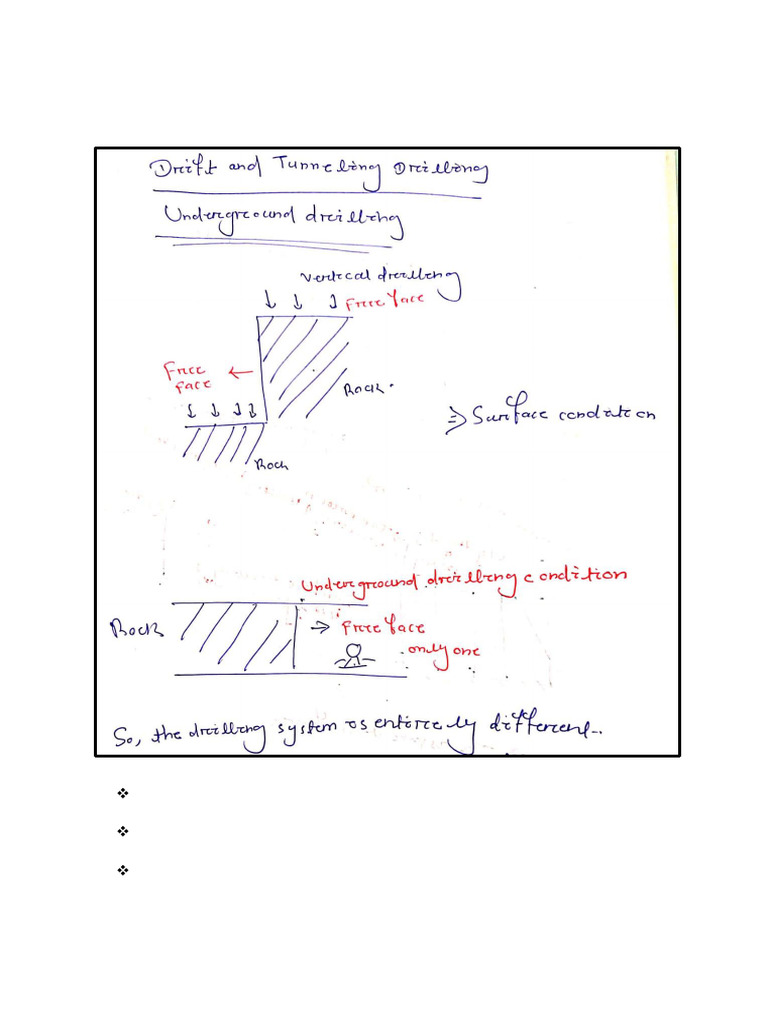 Drift and Tunneling Drilling
Underground drilling
Vertical drilling
Free face
Free
face
Rock.
⇒ Surface condition
Rock
Underground drilling condition
Rock
→ Free face
only one
So, the drilling system is entirely different..